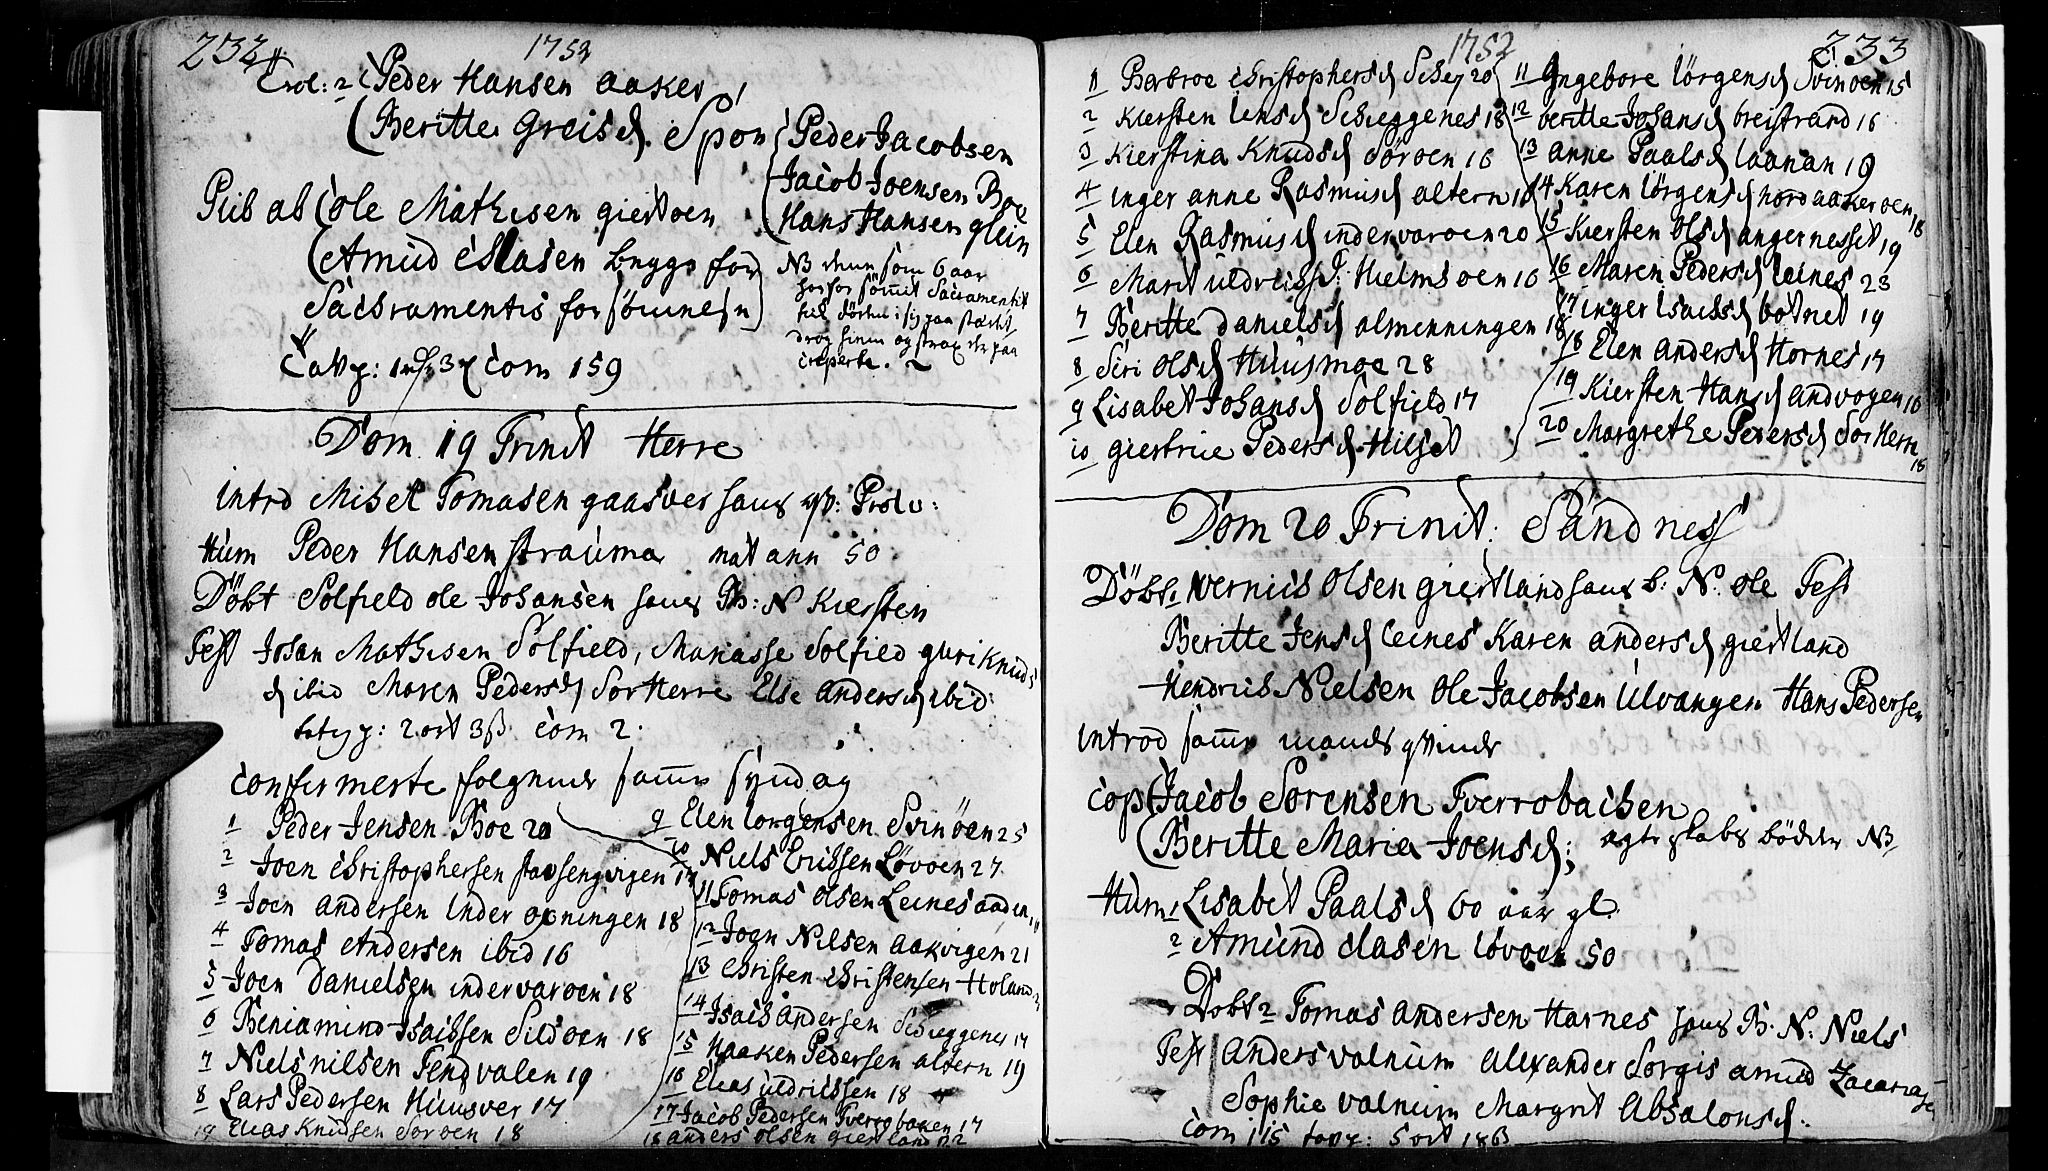 232
1752
Trol: 2 (Peder Hansen aaker
(Beritte Greisd. Spon (Peder Jacobsen
Jacob Joensen Boe
Hans Hansen glein
Pub ab (ole Mathisen giertoen
(Amud Clasen bryge for
Sacsramentis forsømmelsn
NB denn som 6 aar
forsømit Sacramentit
drog hiem og strax der paa
creperte. 2
Com 159
Dom 19 Trinit Herre
Intro Mikel Tomasen gaasver hans qv: Prolv:
Hum Peder Hansen strauma nat ann 50
Döbt Solfield ole Johansen hans B: N Kiersten
Test Johan Mathisen Solfield, Manasse Solfied guri Knuds
d ibid Maren Pedersd Sor Herre Else Andersd ibid
tavg: 2 ort 3ß com 2.
Confirmerte følgende samme syndag
1 Peder Jensen Boe 20
2 Joen Christophersen stavsengvigen 17
3 Joen Andersen Inder øxningen 18
4 Tomas Andersen ibid 16
5 Joen Danielsen indervaroen 18
6 Beniamind Isaissen Sildoen 18
7 Niels nilsen Tendvalen 19
8 Lars Pedersen Huusver 17
19 Elias Knudsen Sor oen 18
9 Elen lorgensen Svinöen 25
10 Niels Erissen Løvoen 27
11 Tomas Olsen Leines
12 Joen Nilsen Aakvigen 21
13 Christen Christensen Holand
14 Isach Andersen Scheggenes 17
15 Haaken Pedersen altern 19
16 Elias uldrissen 18
17 Jacob Pedersen Tverrobaken 17
18 anders olsen giertland 22
1752
233
1 Barbroe Christophersd Schej 20
2 Kiersten lensd Scheggenes 18
3 Kierstina Knudsd Soroen 16
4 inger anne Rasmusd altern
5 Elen Rasmusd indervaroen 20
6 Marit uldrissd. Hielmsoen 16
7 Beritte danielsd almenningen 18
8 Siri olsd Huusmoe 28
9 Lisabet Johansd Solfield 17
10 giertrue Pedersd Hilset
11 Ingebore lörgensd Svinoen 15
12 beritte Johansd breistrand 16
13 anne Paalsd laanan 19
14 Karen lörgensd nordaakeroen 18
15 Kiersten olsd angernesset 19
16 Maren Pedersd leines 23
17 inger Isachsd botnet 19
18 Elen andersd Hornes 17
19 Kiersten Hansd andvogen 16
20 Margrethe Pedersd Sor Herre 18
Dom 20 Trinit: Sandness
Döbt 1 Verniis Olsen giertland hans b: N. ole Test
Beritte Jensd leines Karen andersd giertland
Hendrich Nielsen Ole Jacobsen Ulvangen Hans Pedersen
introd samme mands qvinde
cop (Jacob Sørensen Tverrobachen
(Beritte Maria Joensd; egteskabs bøder NB
Hum 1 Lisabet Paalsd 60 aar gl.
2 Amund Clasen løvoen 50
Döbt 2 Tomas Andersen Harnes hans B. N: Niels
Test Anders valnum Alexander Sorgis amud Zacariasen
Sophie valnum Margrit Absalonsd.
Com 115 tavg: 5 ort 18ß